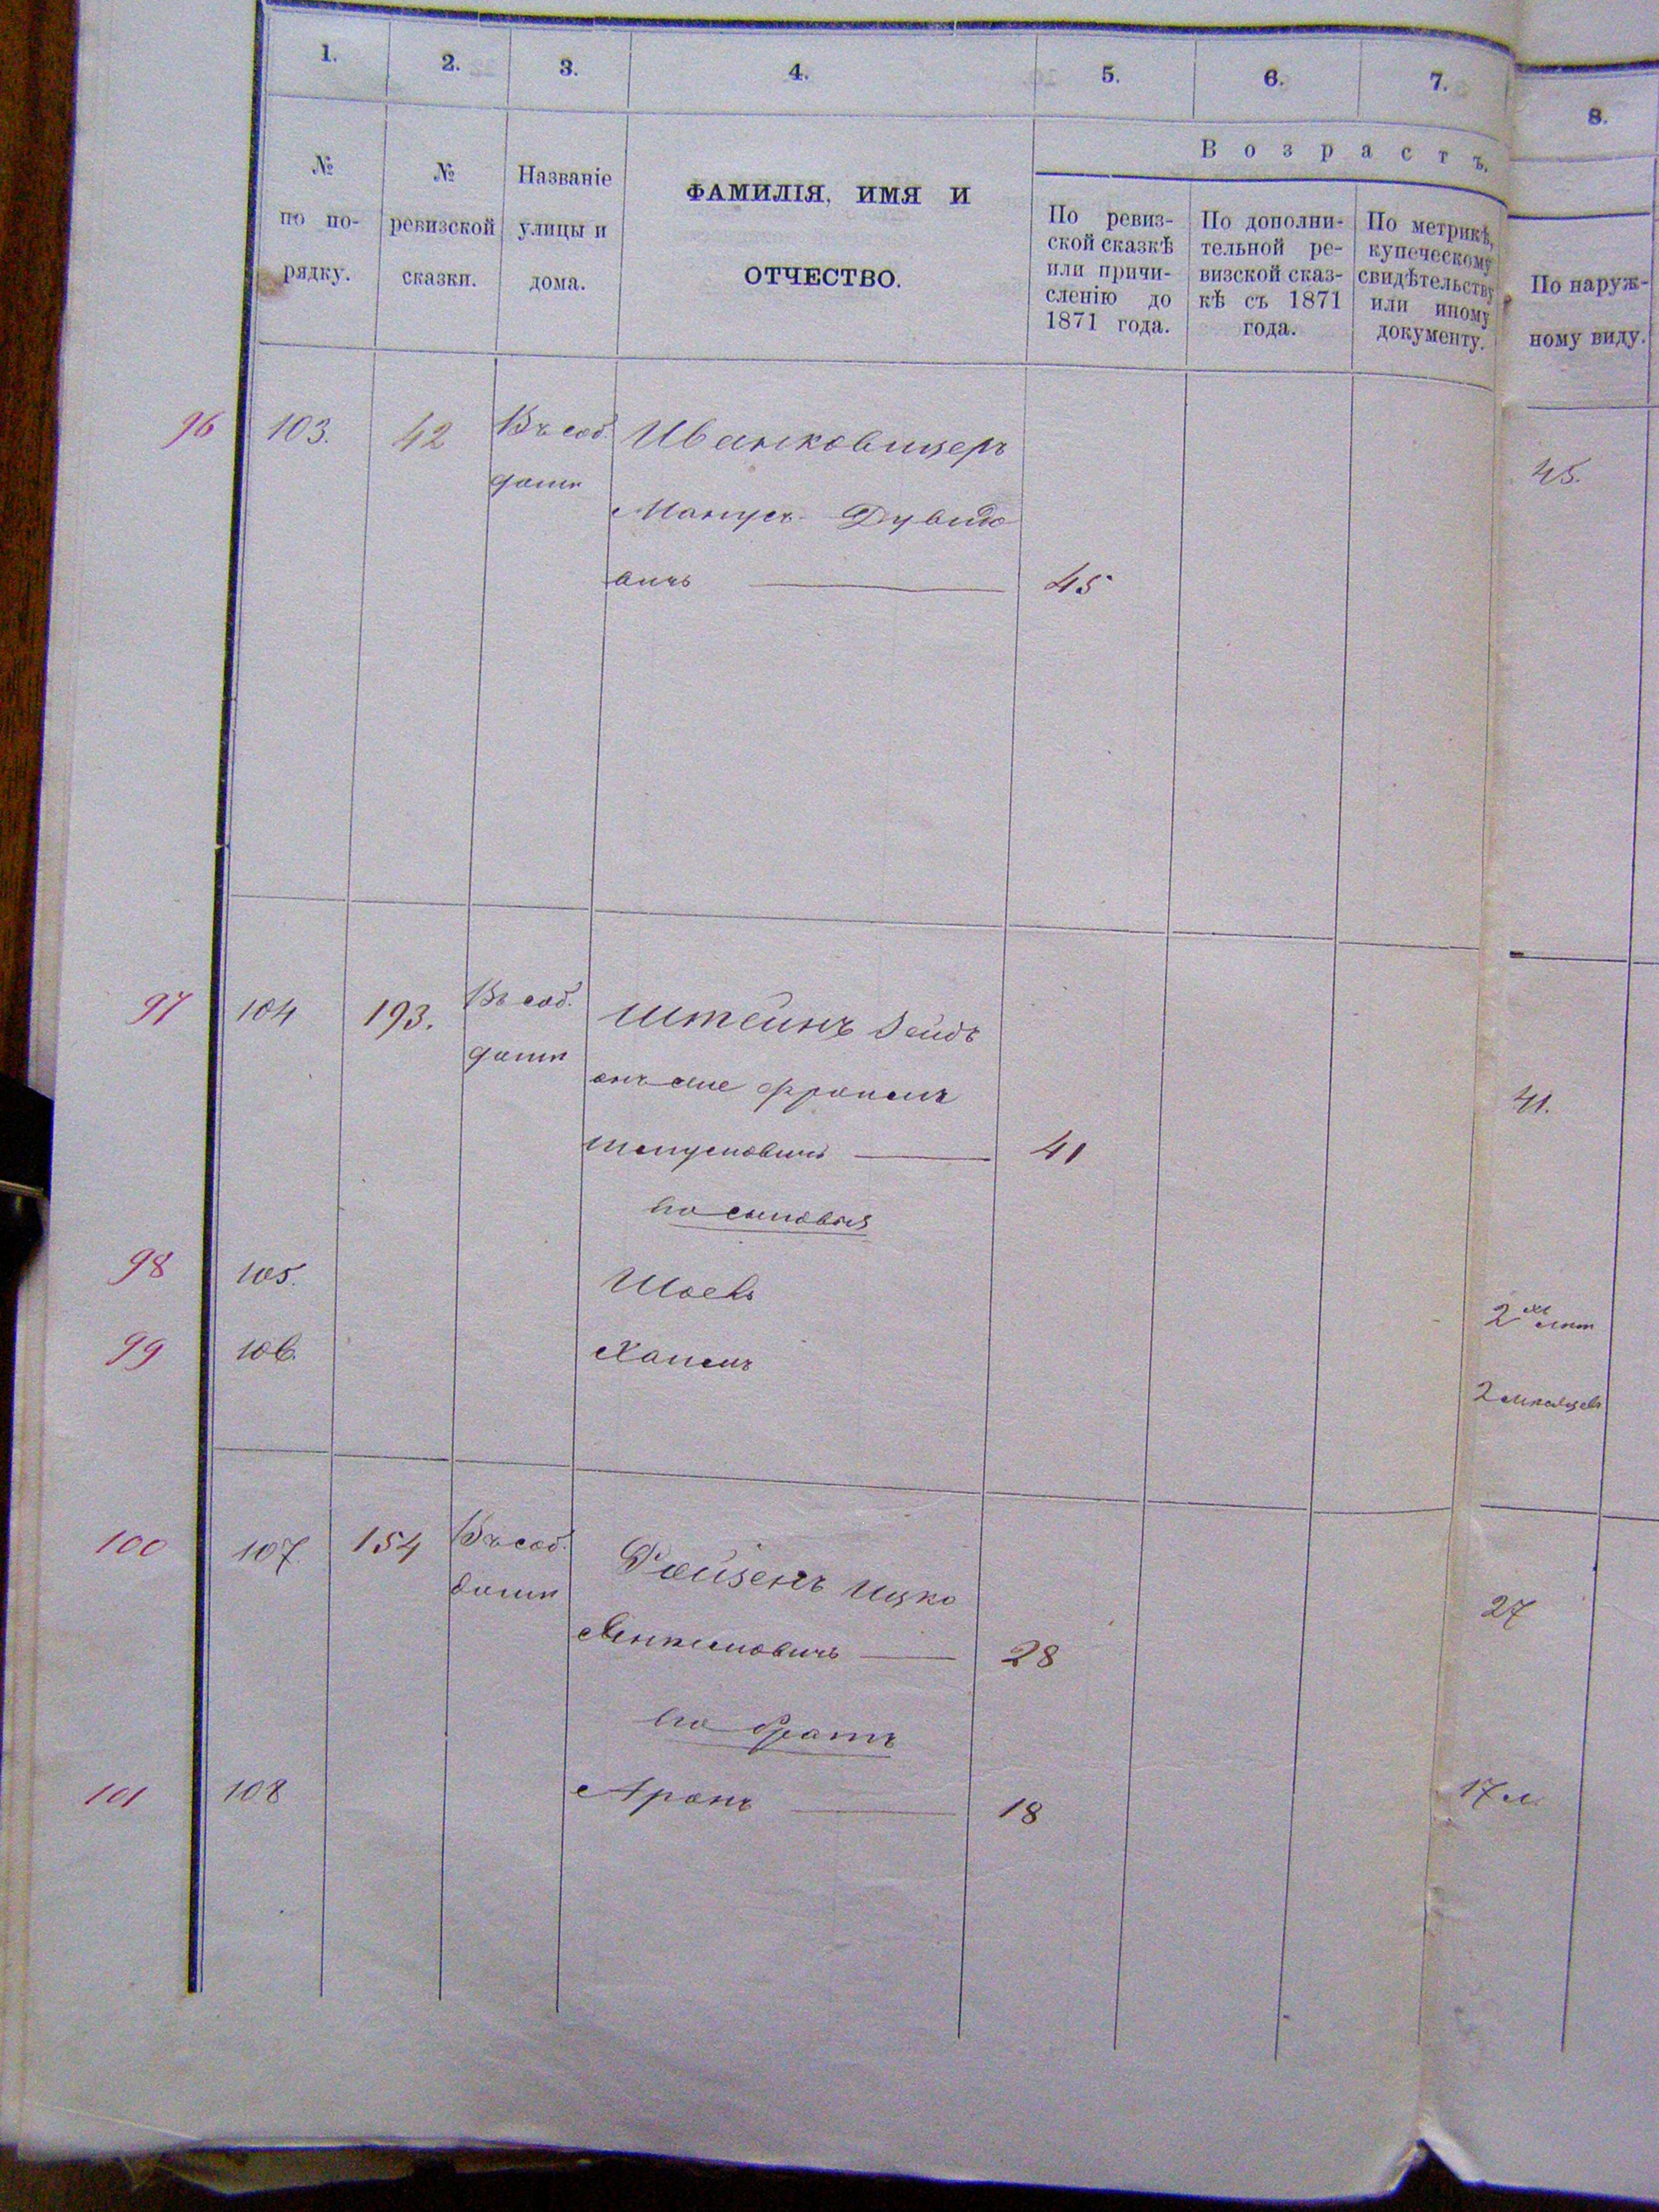 1. 2. 3. 4. 5. 6. 7. 8.
Возрастъ.
№ по по-рядку.
№ ревизской сказки.
Названіе улицы и дома.
ФАМИЛІЯ, ИМЯ И
ОТЧЕСТВО.
По ревиз-
ской сказкѣ
или причи-
сленію до
1871 года.
По дополни-
тельной ре-
визской сказ-
кѣ съ 1871
года.
По метрикѣ,
купеческому
свидѣтельству
или иному
документу.
По наруж-
ному виду.
96 103. 42 Въ соб. Иванковицеръ 45.
домѣ Манусъ Дувидо
вичъ 45
97 104 193. Въ соб. Штейнъ Зейдъ
домѣ онъ же Фроимъ 41.
41
его сыновья
98 105. Шаевъ 2хъ лѣт
99 106. Хаимъ 2 мѣсяцевъ
100 107. 154 Въ соб. Ройзенъ Ицко 27
домѣ 28
его братъ
101 108 Аронъ 18 17 л.